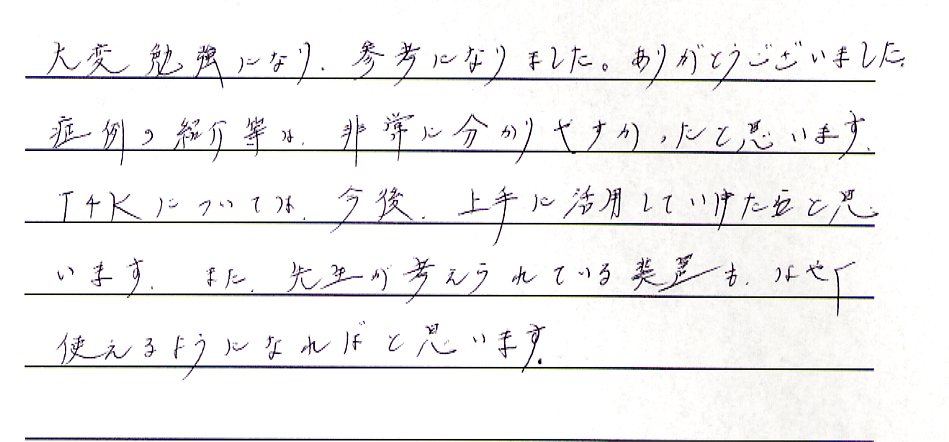 大変勉強になり、参考になりました。ありがとうございました。
症例の紹介等は、非常に分かりやすかったと思います。
T4Kについては、今後、上手に活用していけたらと思
います。また、先生が考えられている装置も、はやく
使えるようになればと思います。